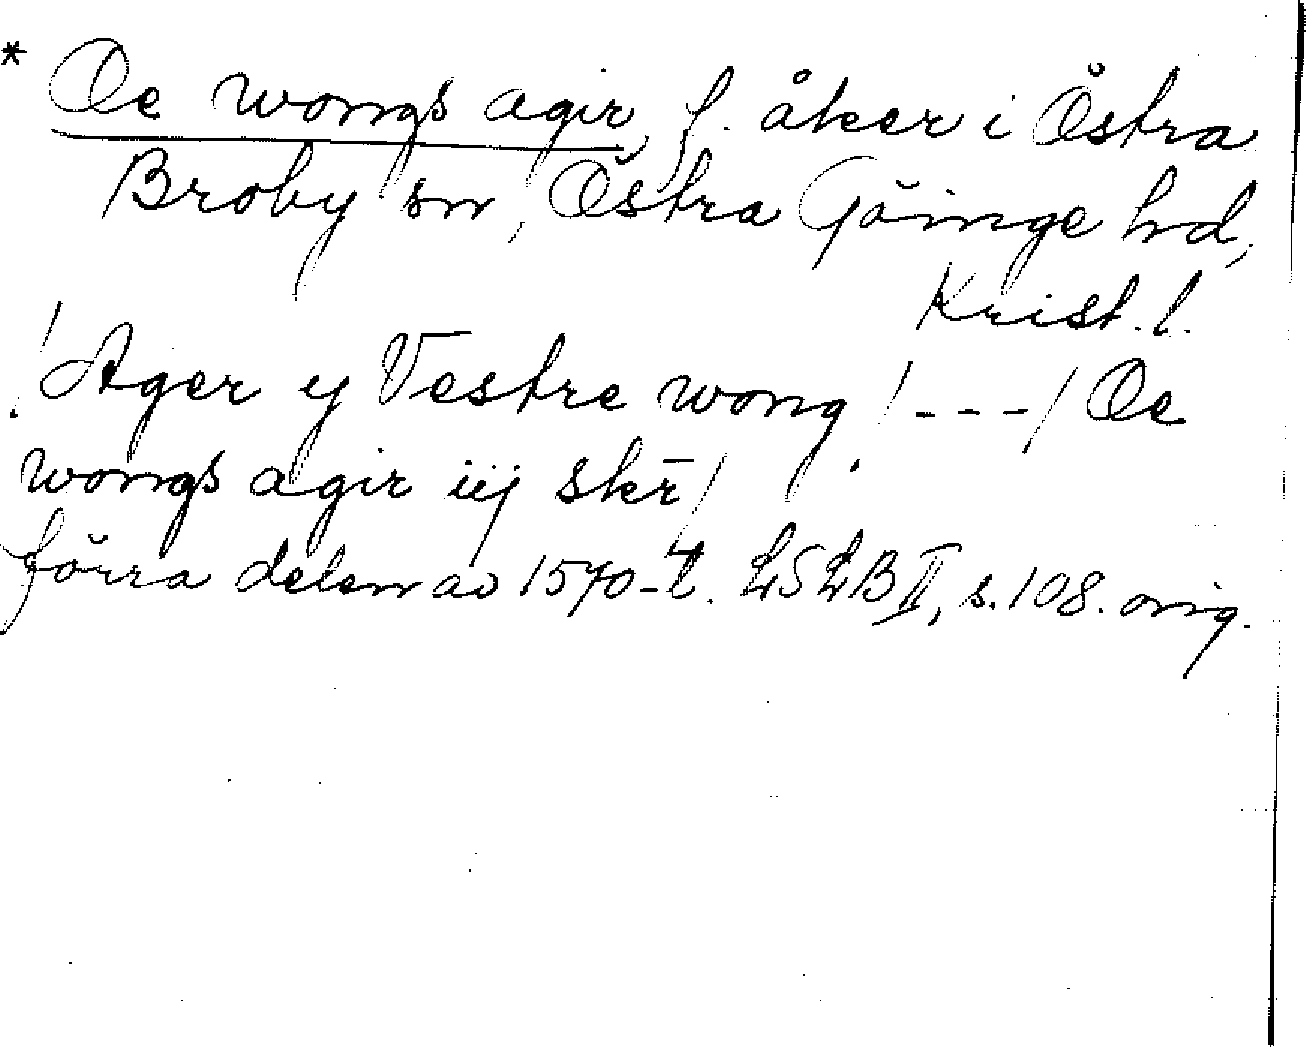 * Oe wongs agir, f. åker i Östra
Broby sn, Östra Göinge hd,
Krist. l.
! Ager y Vestre wong ! --- / Oe
wongs agir iij skr̄ /
förra delen av 1570-t. LSLB II, s. 108. orig.